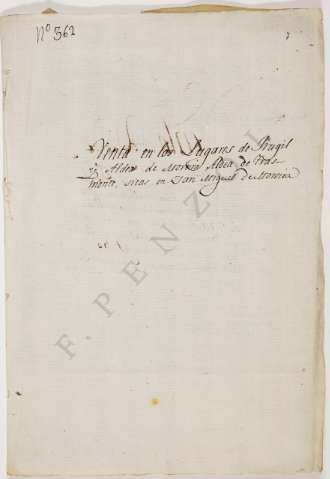 Nº 562
Venta en los Lugares de Brugil
y Aldea de Moreira Aldea de Vra de
monte, sitas en San Miguel de Moreira
F. PENZOL